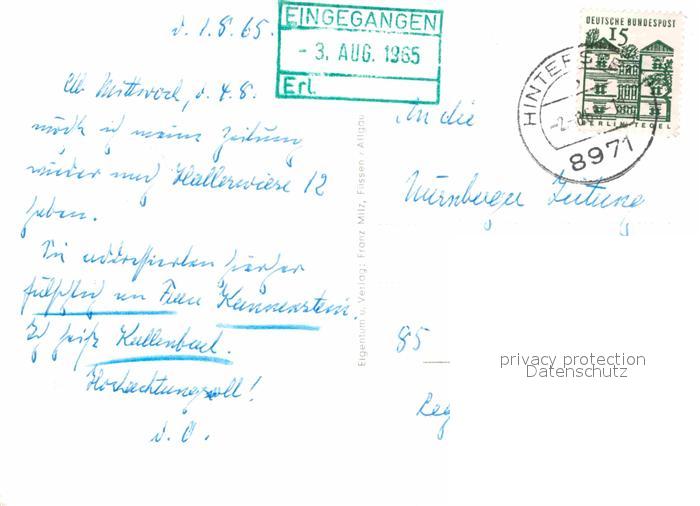 d. 1.8.65.
EINGEGANGEN
- 3. AUG. 1965
Erl.
DEUTSCHE BUNDESPOST
15
BERLIN TEGEL
HINTERSTEIN
-2.-8.65
8971
Ab Mittwoch, d. 4.8.
möcht ich meine Zeitung
wieder nach Hallerwiese 12
haben.
Sie addressierten hierher
fälschlich an Frau Kannenstein.
Ich heiße Kallenbach.
Hochachtungsvoll!
d. O.
An die
Nürnberger Zeitung
85
Eigentum u. Verlag: Franz Milz, Füssen / Allgäu
privacy protection
Datenschutz